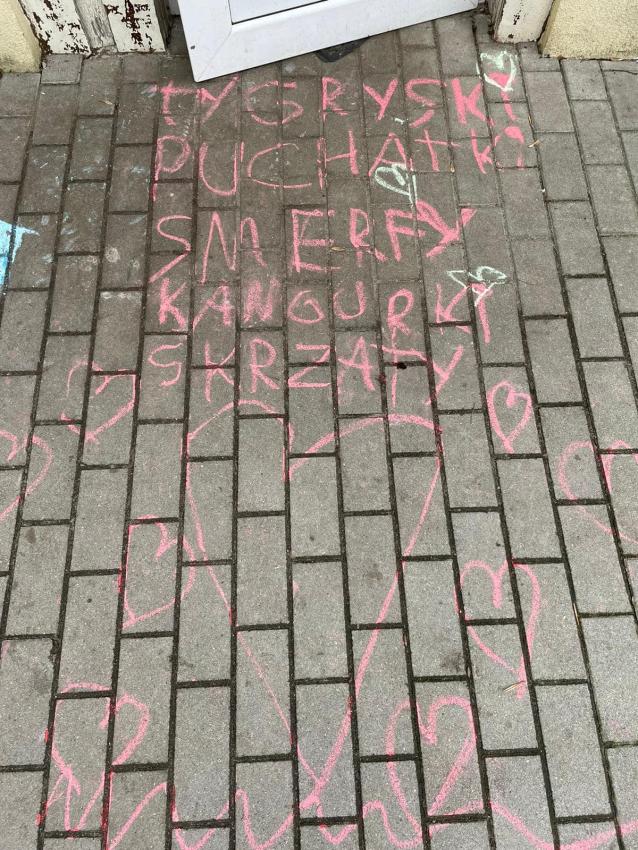 TYGRYSKI
PUCHATKI
SMERFY
KANGURKI
SKRZATY